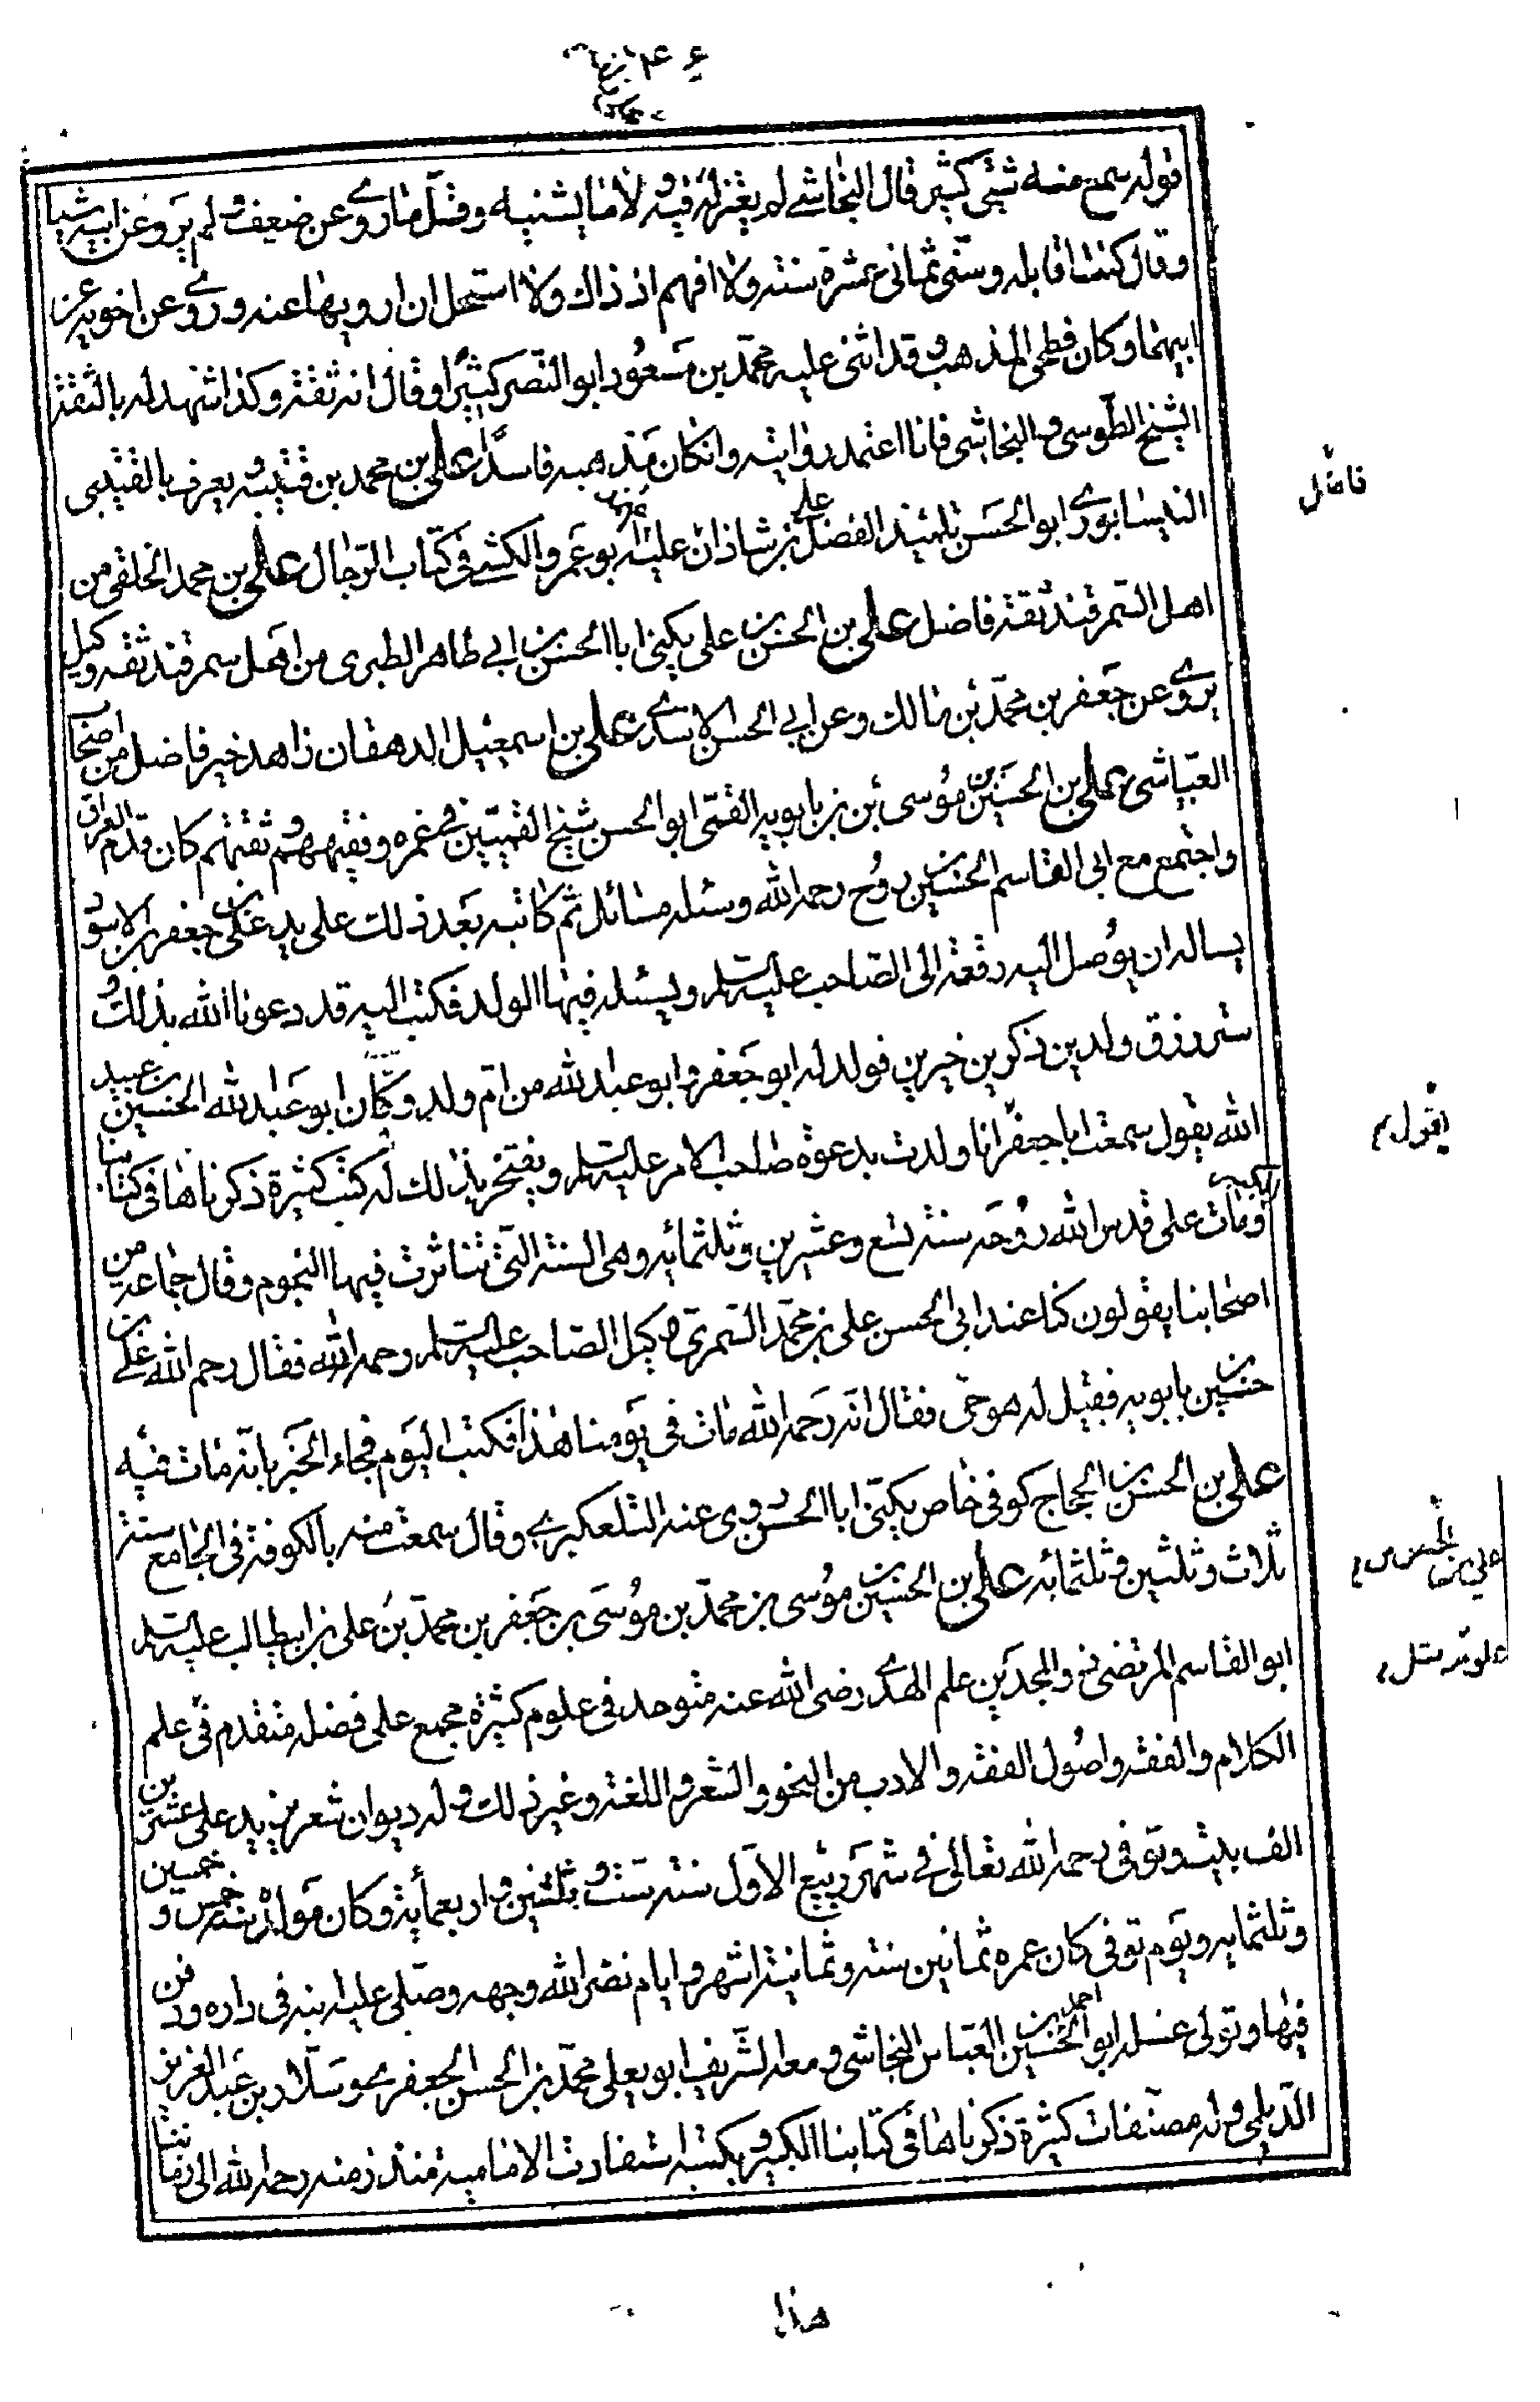 قوله سمع منه شئ كثير قال النجاشي لم يعثر له فيه و لا ما يشنيه و قل ما روى عن ضعيف و لم يرو عن ابيه شيئا
وقال كنت اقابله وسني ثماني عشرة سنة ولا افهم اذ ذاك ولا استحل ان ارويها عنه وروى عن اخويه عن
ابيهما وكان فطحي المذهب وقد اثنى عليه محمد بن مسعود ابو النصر كثيرا وقال انه ثقة وكذا شهد له بالثقة
الشيخ الطوسي و النجاشي فانا اعتمد روايته وانكان مذهبه فاسدا علي بن محمد بن قتيبة و يعرف بالقتيبي
النيسابوري ابو الحسن تلميذ الفضل بن شاذان عليه ابو عمرو الكشي في كتاب الرجال علي بن محمد الخلقي من
اهل السمرقند ثقة فاضل علي بن الحسن بن علي يكنى ابا الحسن بن ابي طاهر الطبري من اهل سمرقند ثقه وكيل
يروي عن جعفر بن محمد بن مالك وعن ابي الحسن الاسدي علي بن اسمعيل الدهقان زاهد خير فاضل من اصحاب
العياشي علي بن الحسين بن موسى بن بابويه القمي ابو الحسن شيخ القميين في عصره وفقيههم و ثقتهم كان قدم العراق
واجتمع مع ابي القاسم الحسين بن روح رحمه الله وسئله مسائل ثم كاتبه بعد ذلك على يد علي بن جعفر بن الاسود
يساله ان يوصل اليه رقعة الى الصاحب عليه السلم ويسئله فيها الولد فكتب اليه قد دعونا الله بذلك و
سترزق ولدين ذكرين خيرين فولد له ابو جعفر و ابو عبد الله من ام ولد وكان ابو عبد الله الحسين بن عبيد
الله يقول سمعت ابا جعفر انا ولدت بدعوة صاحب الامر عليه السلم ويفتخر بذلك له كتب كثيرة ذكرناها في كتابنا
الكبير
ومات علي قدس الله روحه سنة تسع وعشرين وثلثمائه وهي السنة التي تناثرت فيها النجوم وقال جماعه من
اصحابنا يقولون كنا عند ابي الحسن علي بن محمد السمري وكيل الصاحب عليه السلم رحمه الله فقال رحم الله علي بن
حسين بن بابويه فقيل له هو حي فقال انه رحمه الله مات في يومنا هذا فكتب اليوم فجاء الخبر بانه مات فيه
علي بن الحسن بن الحجاج كوفي خاص يكنى ابا الحسن روى عنه التلعكبري وقال سمعت منه بالكوفة في الجامع سنة
ثلاث وثلثين وثلثمائه علي بن الحسين بن موسى بن محمد بن موسى بن جعفر بن محمد بن علي بن ابيطالب عليه السلم
ابو القاسم المرتضى ذو المجدين علم الهدى رضي الله عنه متوحد في علوم كثيرة مجمع على فضله متقدم في علم
الكلام والفقه واصول الفقه والادب من النحو والشعر و اللغة وغير ذلك و له ديوان شعر يزيد على عشرين
الف بيت وتوفى رحمه الله تعالى في شهر ربيع الاول سنة ست و ثلثين و اربعمأية وكان مولده سنة خمس و خمسين
وثلثمايه ويوم توفى كان عمره ثمانين سنة وثمانية اشهر و ايام نضر الله وجهه وصلى عليه ابنه في داره ودفن
فيها وتولى غسله ابو الحسين احمد بن العباس النجاشي و معه الشريف ابو يعلى محمد بن الحسن الجعفري وسلار بن عبد العزيز
الديلمي و له مصنفات كثيرة ذكرناها في كتابنا الكبير و بكتبه استفادت الامامية منذ زمنه رحمه الله الى زماننا
فاضل
يقول م
علي بن الحسن
هذا